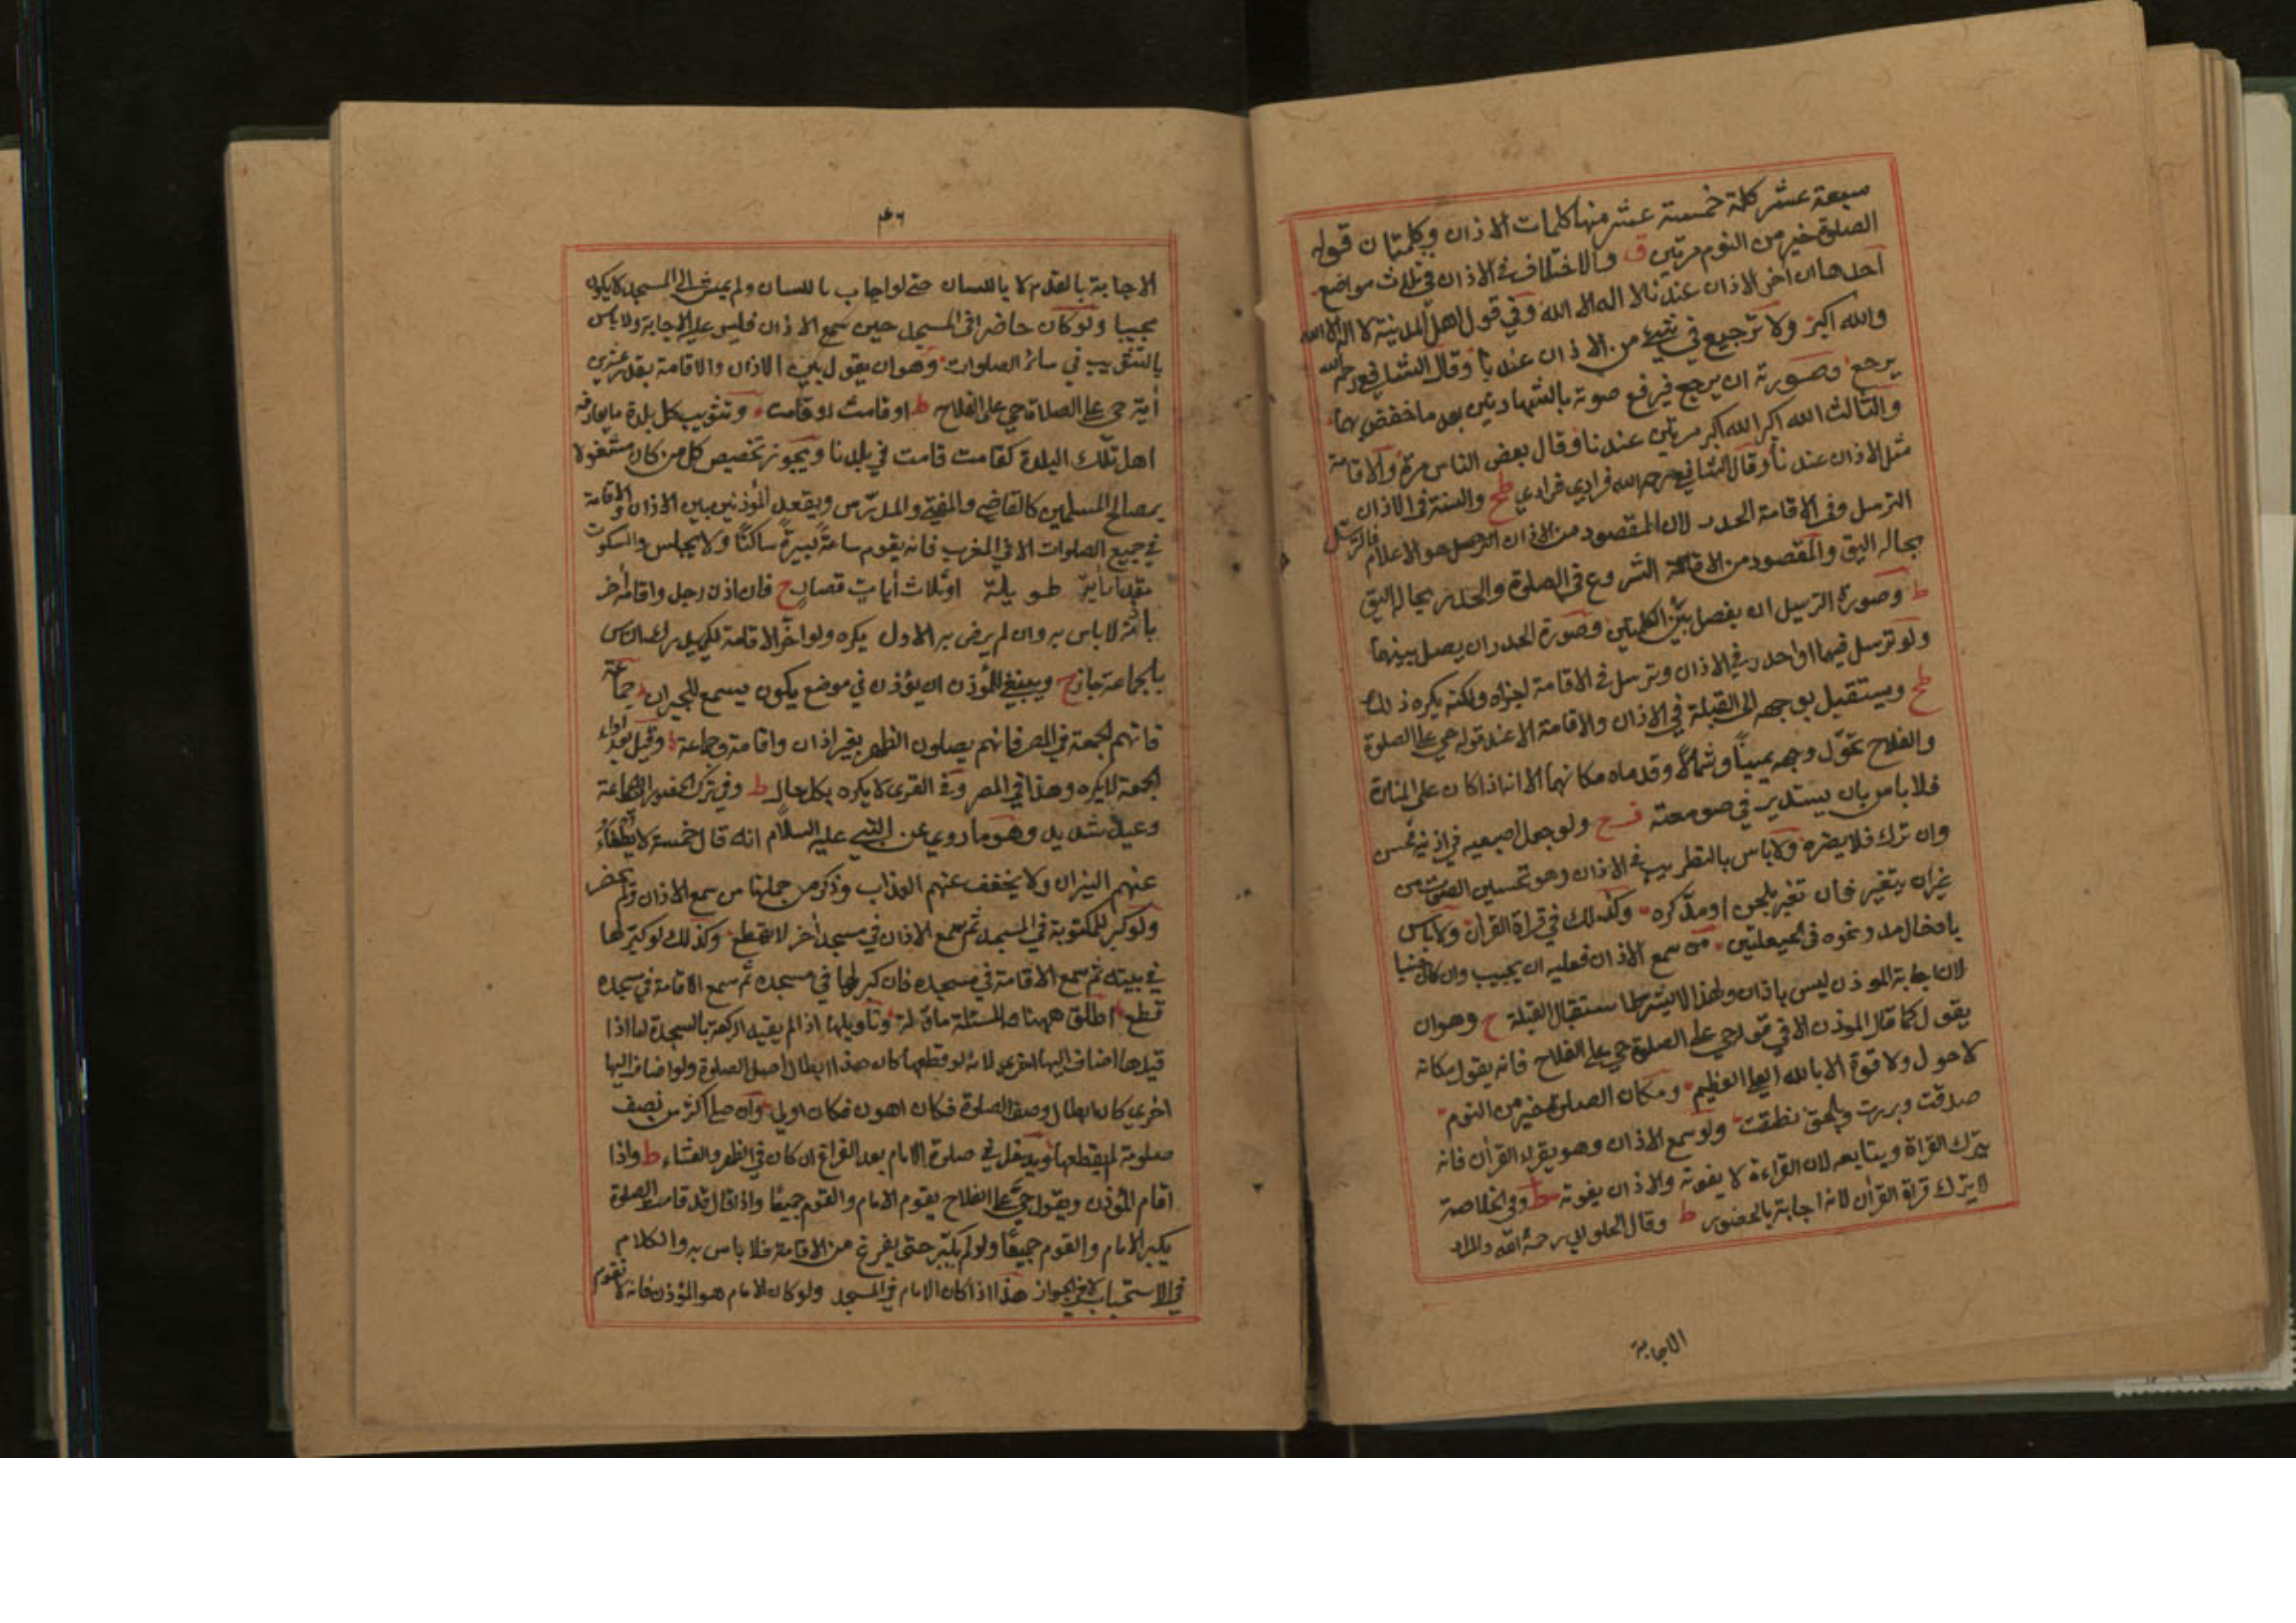 سبعة عشر كلمة خمسة عشر منها كلمات الاذان وكلمتان قوله
الصلوة خير من النوم مرتين ق والاختلاف في الاذان في ثلاث مواضع
احدها ان اخر الاذان عندنا لا اله الا الله وفي قول اهل المدينة لا اله الا الله
والله اكبر ولا ترجيع في شيء من الاذان عندنا وقال الشافعي رحمه الله
يرجع وصورته ان يرجع فيرفع صوته بالشهادتين بعد ما خفض بهما
والثالث الله اكبر الله اكبر مرتين عندنا وقال بعض الناس مرة والاقامة
مثل الاذان عندنا وقال الشافعي رحمه الله فرادي فرادي طح والسنة في الاذان
الترسل وفي الاقامة الحدر لان المقصود من الاذان هو الاعلام فالترسل
بحاله اليق والمقصود من الاقامة الشروع في الصلوة والحدر بحاله اليق
ط وصورة الترسل ان يفصل بين الكلمتين وصورة الحدر ان يصل بينهما
ولو ترسل فيهما او احدر في الاذان وترسل في الاقامة اجزاه ولكنه يكره ذلك
طح ويستقبل بوجهه الى القبلة في الاذان والاقامة الا عند قوله حي على الصلوة
والفلاح تحوّل وجهه يمينًا وشمالًا وقدماه مكانهما الا انه اذا كان على المنارة
فلا باس بان يستدير في صومعته ولو جعل اصبعيه في اذنيه فحسن
وان ترك فلا يضره ولا باس بالتطريب في الاذان وهو تحسين الصوت من
غير ان يتغير فان تغير بلحن او مد كره وكذلك في قراة القران ولا باس
بادخال مد ونحوه في الحيعلتين من سمع الاذان فعليه ان يجيب وان كان جنبا
لان اجابة الموذن ليس باذان ولهذا لا يشترط استقبال القبلة ح وهو ان
يقول كما قال الموذن الا في قوله حي على الصلوة حي على الفلاح فانه يقول مكانه
لا حول ولا قوة الا بالله العلي العظيم ومكان الصلوة خير من النوم
صدقت وبررت وبالحق نطقت ولو سمع الاذان وهو يقراء القران فانه
يترك القراة ويتابعه لان القراءة لا يفوته والاذان يفوته ط وفي الخلاصة
لا يترك قراة القران لانه اجابة بالحضور ط وقال الحلواني رحمة الله والمراد
الاجابة
الاجابة بالقدم لا باللسان حتى لو اجاب باللسان ولم يمش الى المسجد لا يكون
مجيبا ولو كان حاضرا في المسجد حين سمع الاذان فليس عليه الاجابة ولا باس
بالتثويب في سائر الصلوات وهو ان يقول بين الاذان والاقامة بقدر عشرين
أية حي على الصلاة حي على الفلاح ط او قامت او قامت وتثويب كل بلدة ما يعارفه
اهل تلك البلدة كقامت قامت في بلدنا ويجوز تخصيص كل من كان مشغولا
بمصالح المسلمين كالقاضي والمفتي والمدرّس ويقعد المؤذنين بين الاذان والاقامة
في جميع الصلوات الا في المغرب فانه يقوم ساعةً يسيرةً ساكتًا ولا يجلس والسكوت
بقدر أية طويلة او ثلاث أيات قصار ح فان اذن رجل واقام أخر
باذنه لا باس به وان لم يرض به الاول يكره ولو اخّر الاقامة لكي يدرك الناس
بالجماعة جاز ح وينبغي للمؤذن ان يؤذن في موضع يكون يسمع للجيران جماعة
فاتهم الجمعة في المصر فانهم يصلون الظهر بغير اذان واقامة وجماعة وقيل بعد اداء
الجمعة لا يكره وهذا في المصر وفي القرى لا يكره بكل حال ط وفي ترك الحضور الى الجماعة
وعيد شديد وهو ما روي عن النبي عليه السلام انه قال خمسة لا يطفاء
عنهم النيران ولا يخفف عنهم العذاب وذكر من جملتها من سمع الاذان ولم يحضر
ولو كبر للمكتوبة في المسجد ثم سمع الاذان في مسجد أخر لا يقطع وكذلك لو كبر لها
في بيته ثم سمع الاقامة في مسجده فان كبر لها في مسجده ثم سمع الاقامة في مسجده
قطع اطلق ههنا المسئلة وتاويلها اذا لم يقيد الركعة بالسجدة اما اذا
قيدها اضاف اليها اخرى لانه لو قطعها كان هذا ابطال اصل الصلوة ولو اضاف اليها
اخري كان ابطال وصف الصلوة فكان اهون فكان اولى وان صلى اكثر من نصف
صلوته لم يقطعها ويدخل في صلوة الامام بعد الفراغ ان كان في الظهر والعشاء ط واذا
اقام المؤذن ويقول حيّ على الفلاح يقوم الامام والقوم جميعًا واذا قال قد قامت الصلوة
يكبر الامام والقوم جميعًا ولو لم يكبّر حتى يفرغ من الاقامة فلا باس به والكلام
في الاستحباب لا في الجواز هذا اذا كان الامام في المسجد ولو كان الامام هو المؤذن فانه لا تقوم